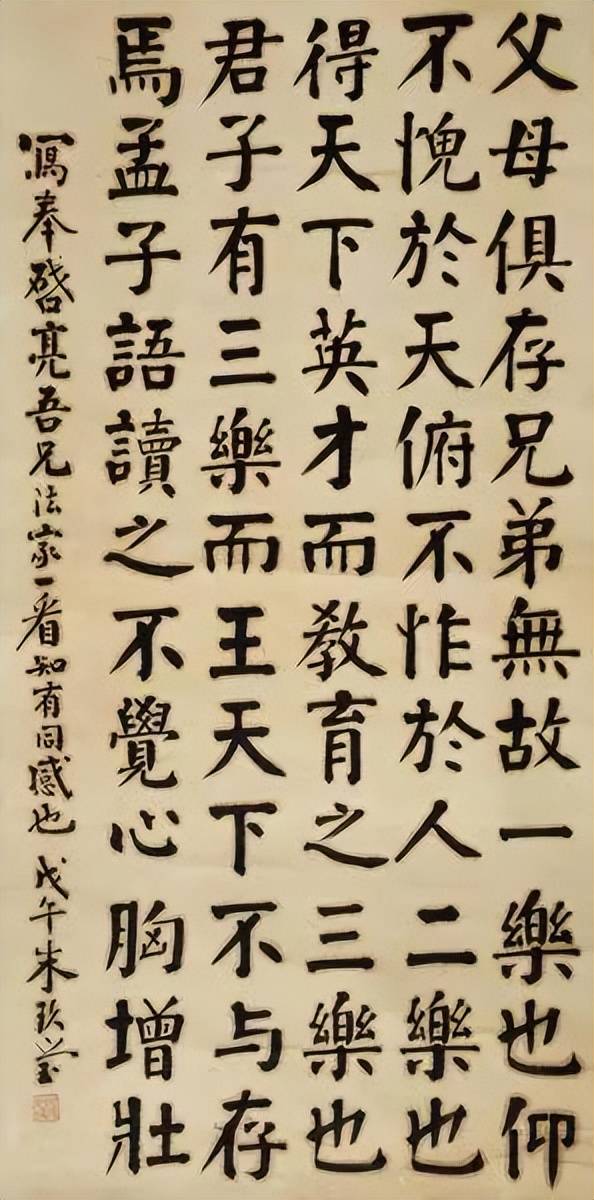 父母俱存兄弟無故一樂也仰
不愧於天俯不怍於人二樂也
得天下英才而教育之三樂也
君子有三樂而王天下不与存
焉孟子語讀之不覺心胸增壯
寫奉啓亮吾兄法家一看知有同感也 戊午朱玖瑩